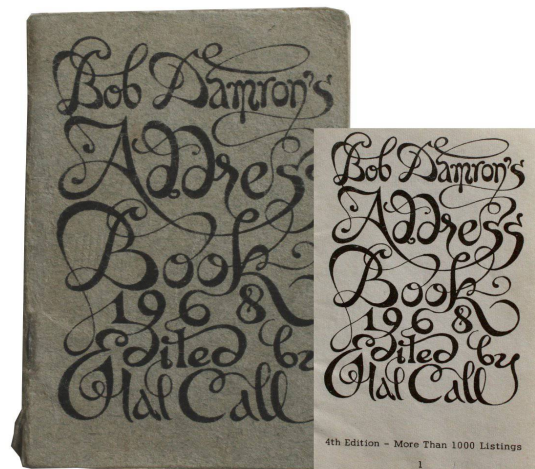 Bob Damron's
Address
Book
1968
Edited by
Hal Call
Bob Damron's
Address
Book
1968
Edited by
Hal Call
4th Edition - More Than 1000 Listings
1